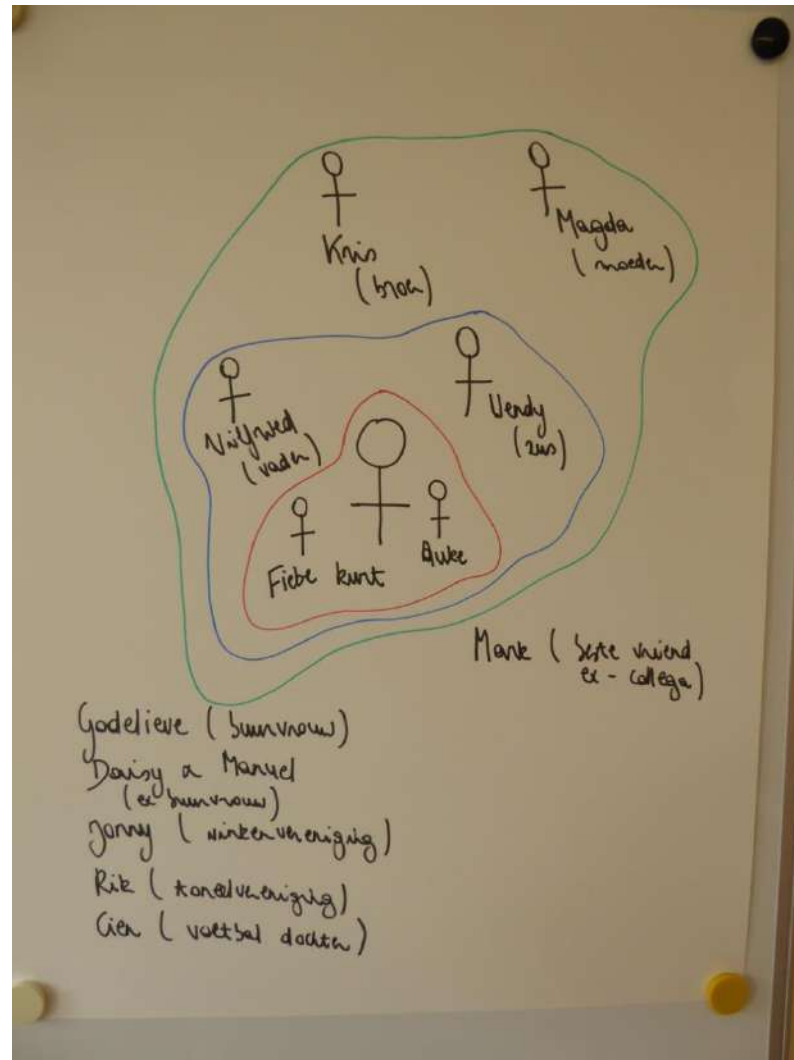 Kris
(broer)
Magda
(moeder)
Wilfried
(vader)
Wendy
(zus)
Fiebe
kurt
Auke
Mark (beste vriend
ex-collega)
Godelieve (buurvrouw)
Daisy & Manuel
(ex buurvrouw)
Jonny (vinkenvereniging)
Rik (toneelvereniging)
Cien (voetbal dochter)